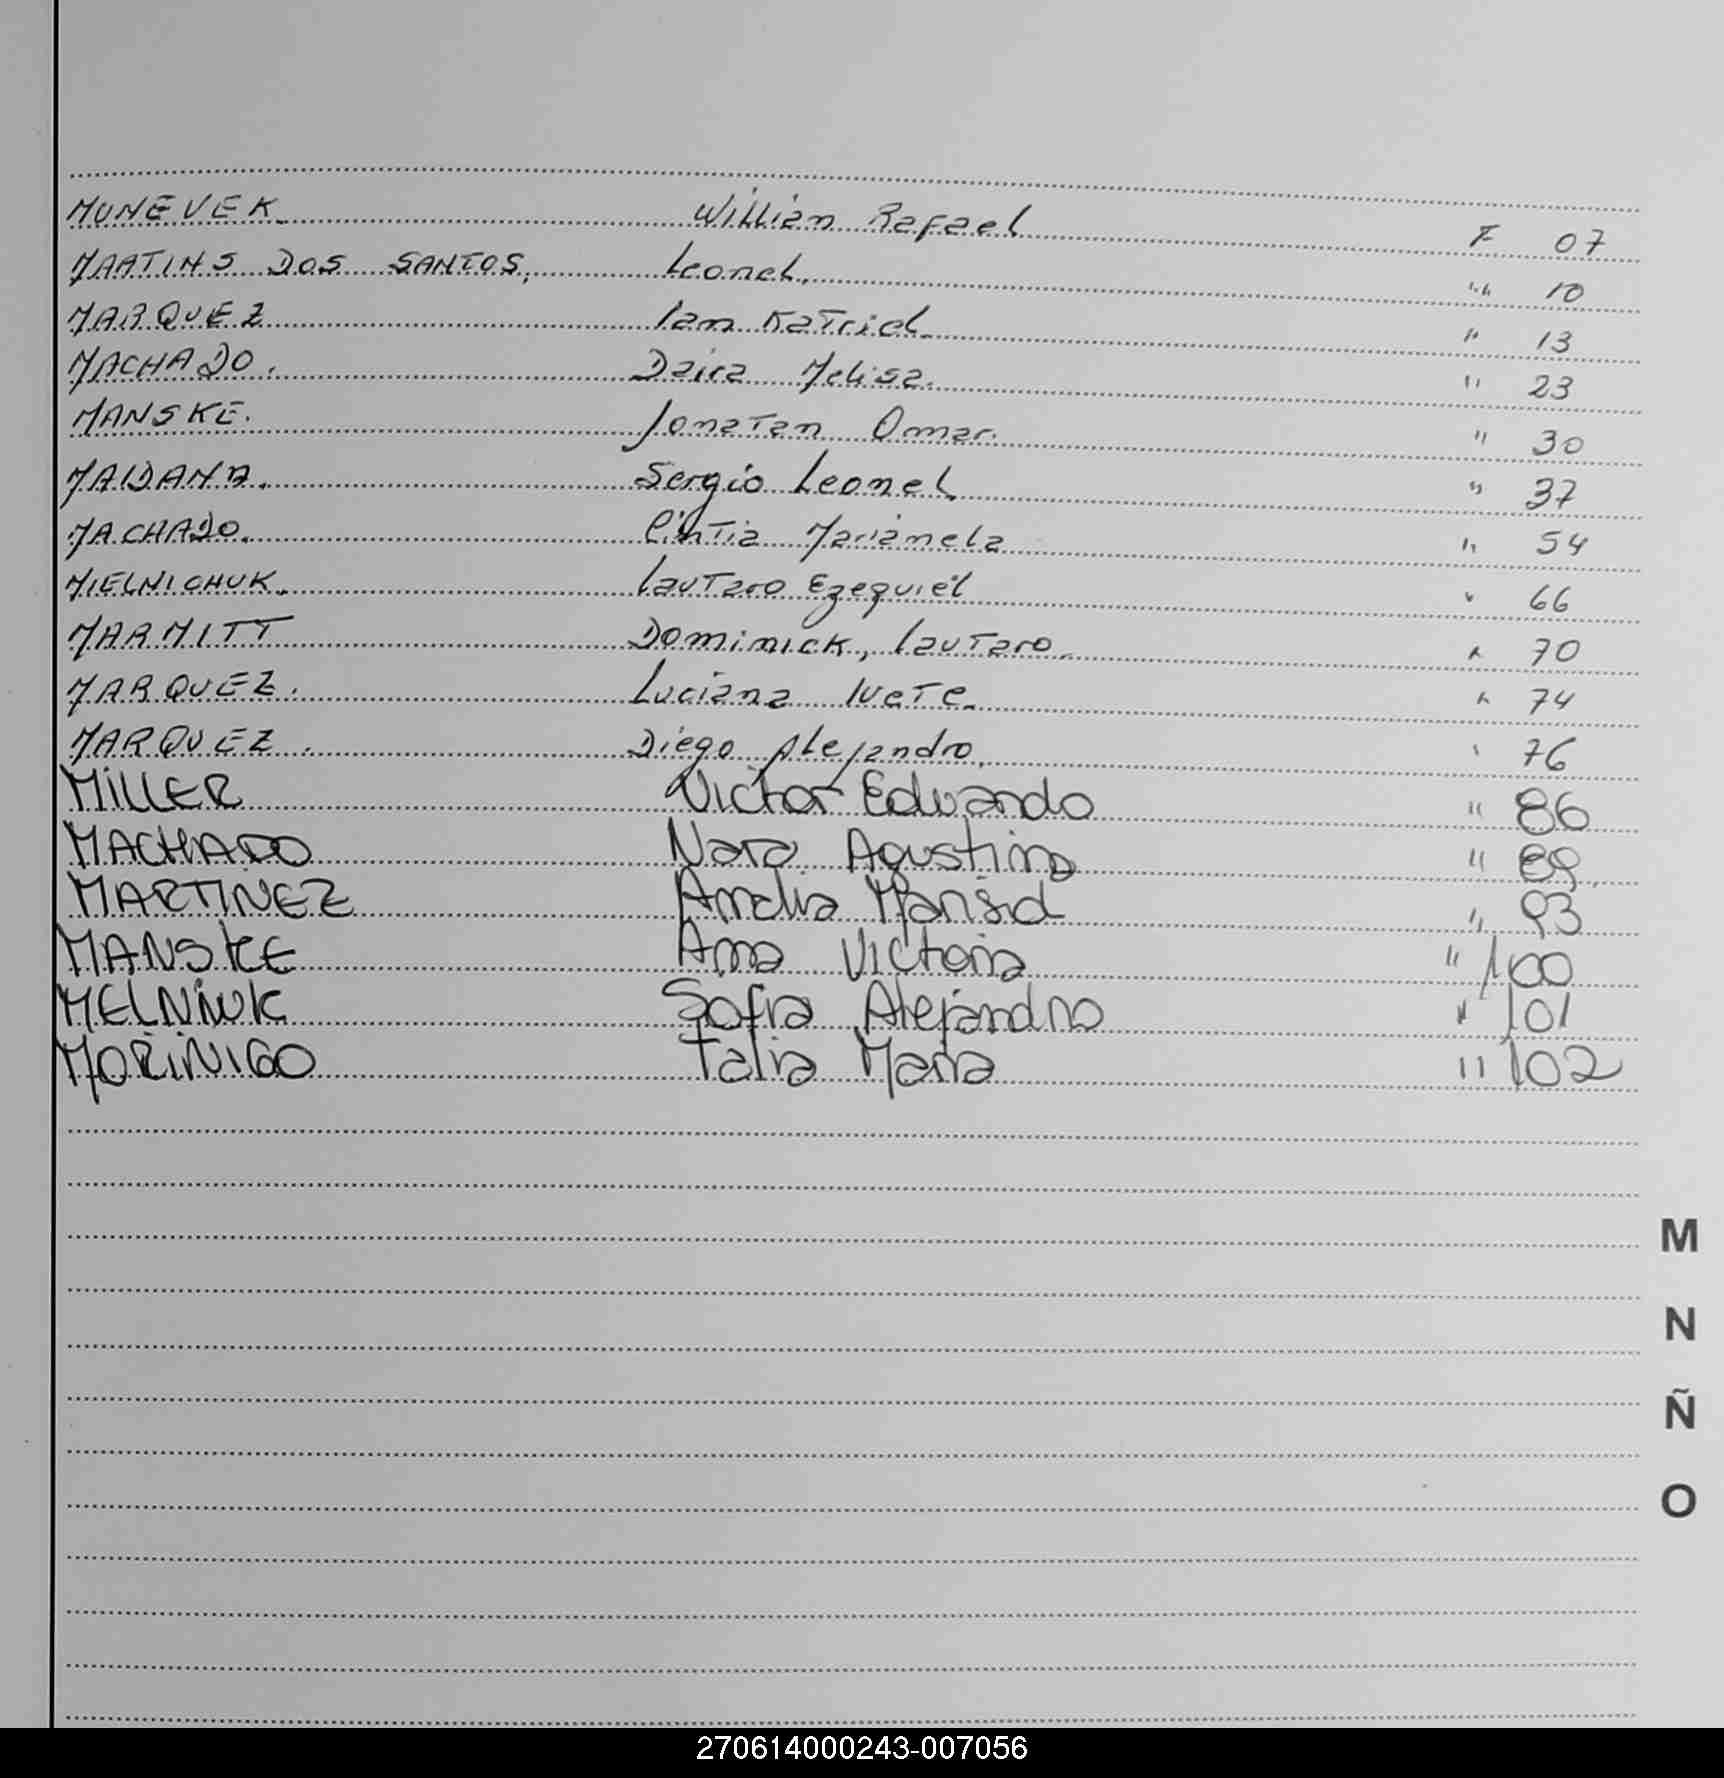 MUNEVEK Willian Rafael F 07
MARTINS DOS SANTOS, Leonel. " 10
MARQUEZ Ian Katriel " 13
MACHADO. Daira Melisa. " 23
MANSKE. Jonatan Omar. " 30
MAIDANA. Sergio Leonel " 37
MACHADO. Cintia Marianela " 54
MIELNICHUK. Lautaro Ezequiel " 66
MARMITT Dominick, Lautaro " 70
MARQUEZ. Luciana Ivete. " 74
MARQUEZ. Diego Alejandro. " 76
MILLER Victor Eduardo " 86
MACHADO Nara Agustina " 89
MARTINEZ Amelia Marisol " 93
MANSKE Ana Victoria " 100
MELNIUK Sofia Alejandra " 101
MORINIGO Talia Maria " 102
M
N
Ñ
O
270614000243-007056